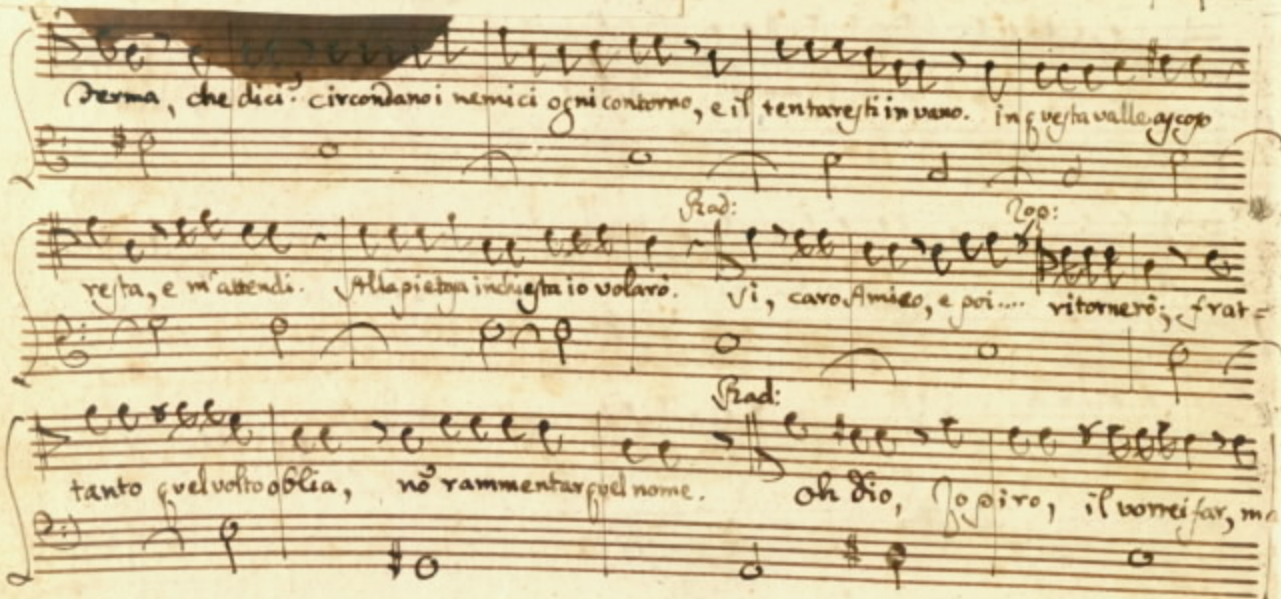 Ferma, che dici? circondano i nemici ogni contorno, e il tentaresti in vano. in questa valle ascoso
Rad: Zop:
resta, e m'attendi. Alla pietosa inchiesta io volarò. Si, caro Amico, e poi.... ritornerò; frat=
Rad:
tanto quel volto oblia, nõ rammentar quel nome. oh Dio, Zopiro, il vorrei far, ma